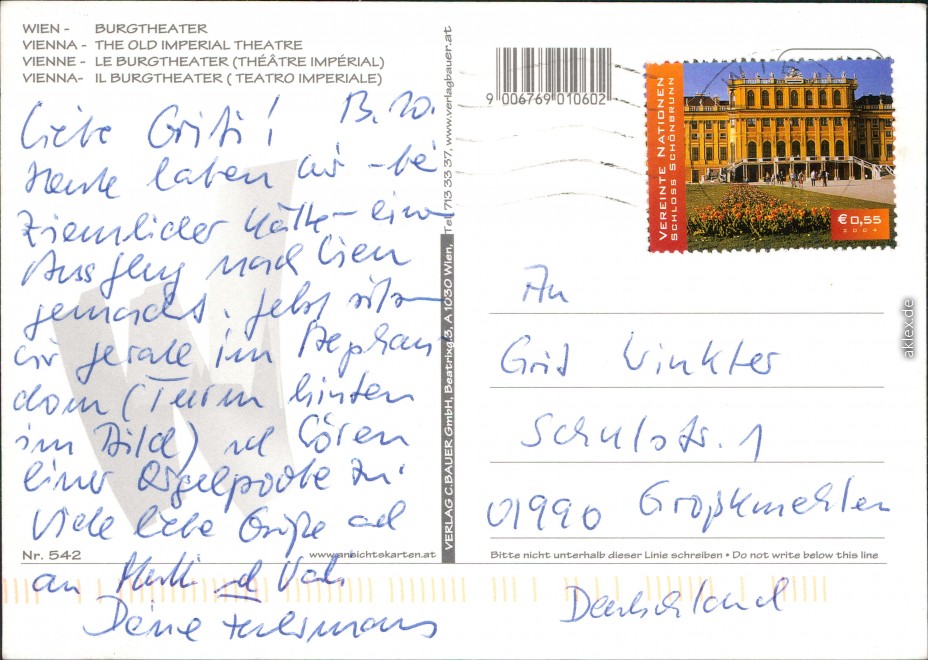 WIEN - BURGTHEATER
VIENNA - THE OLD IMPERIAL THEATRE
VIENNE - LE BURGTHEATER (THÉÂTRE IMPÉRIAL)
VIENNA- IL BURGTHEATER ( TEATRO IMPERIALE)
13.10.
Liebe Griti!
Heute haben wir - bei
ziemlicher Kälte - einen
Ausflug nach Wien
gemacht. Jetzt sitzen
wir gerade im Stephans-
dom (Turm hinten
im Bild) und hören
einer Orgelprobe zu.
Viele liebe Grüße auch
an Mutti und Vati
Deine
Nr. 542
www.ansichtskarten.at
VERLAG C.BAUER GmbH, Beatrixg.3, A 1030 Wien, Tel. 713 33 37, www.verlagbauer.at
9 006769 010602
VEREINTE NATIONEN
SCHLOSS SCHÖNBRUNN
€ 0,55
2004
An
Grit Winkler
Schulstr. 1
01990 Großkmehlen
Bitte nicht unterhalb dieser Linie schreiben • Do not write below this line
Deutschland
aklex.de